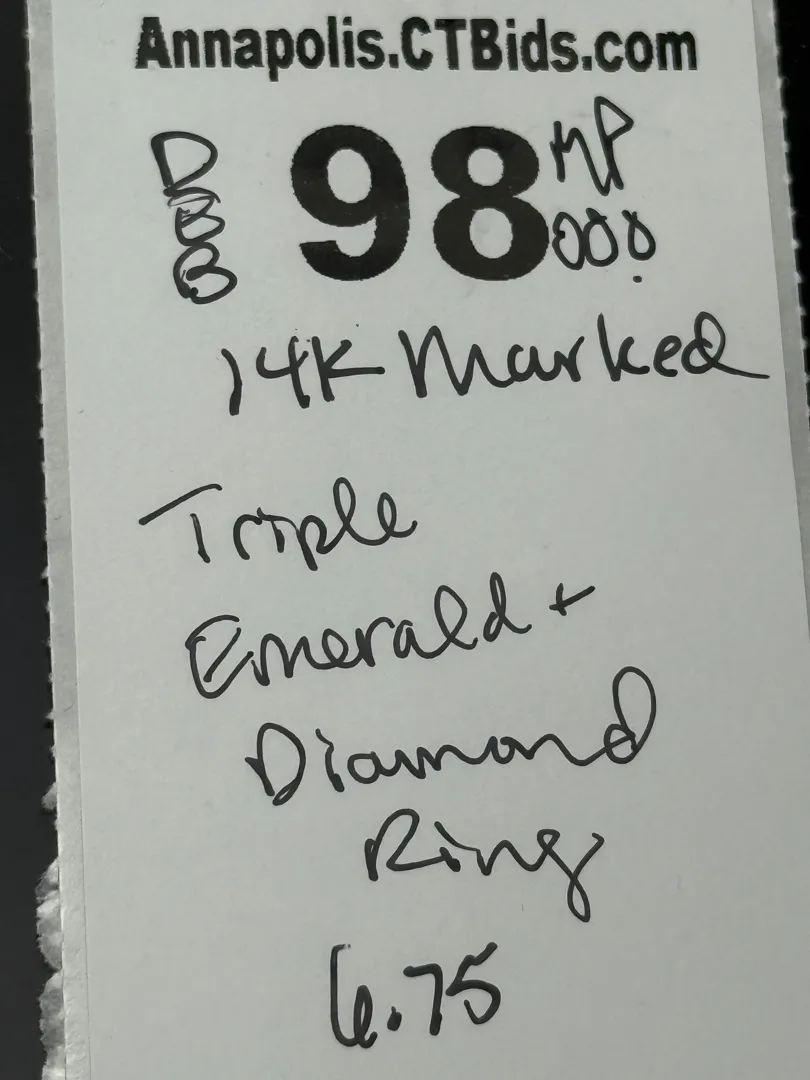 Annapolis.CTBids.com
DBB 98 MP
000
14K Marked
Triple
Emerald +
Diamond
Ring
6.75